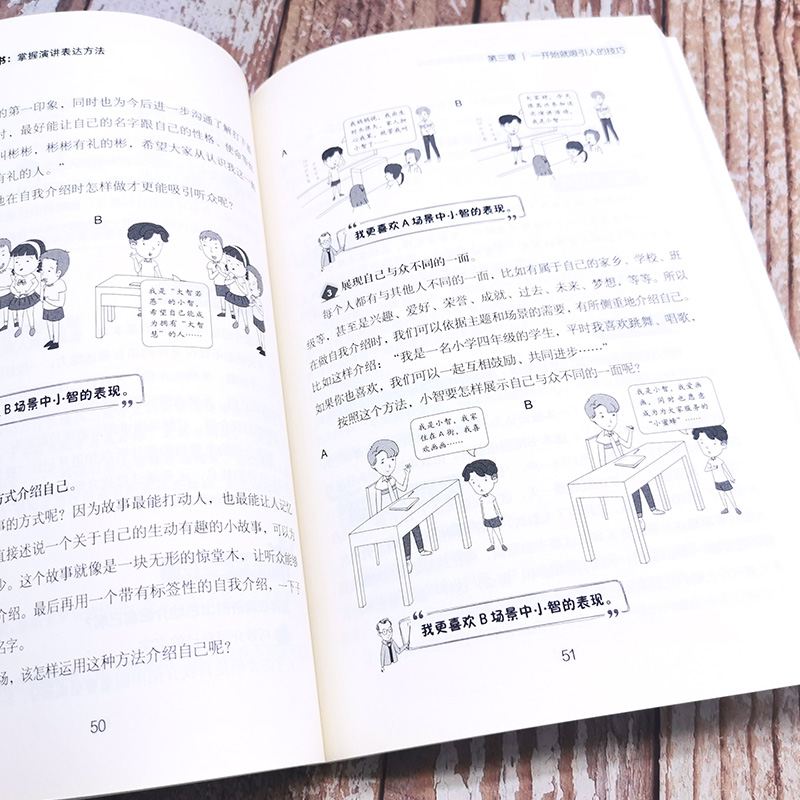 书：掌握演讲表达方法
的第一印象，同时也为今后进一步沟通了解打下
时，最好能让自己的名字跟自己的性格、使命
叫彬彬，彬彬有礼的彬，希望大家从认识我这
有礼的人。”
他在自我介绍时怎样做才更能吸引听众呢？
B
我是“大智若
愚”的小智，
希望自己能成
为拥有“大智
慧”的人……
B场景中小智的表现。
方式介绍自己。
事的方式呢？因为故事最能打动人，也最能让人记忆
直接述说一个关于自己的生动有趣的小故事，可以为
少。这个故事就像是一块无形的惊堂木，让听众能够
介绍。最后再用一个带有标签性的自我介绍，一下子
名字。
场，该怎样运用这种方法介绍自己呢？
50
第三章 | 一开始就吸引人的技巧
A
B
我妈妈说，我出生
时头很大，家人种
小智了……
大家好，今天
我是小智。
“我更喜欢A场景中小智的表现。”
3 展现自己与众不同的一面。
每个人都有与其他人不同的一面，比如有属于自己的家乡、学校、班
级等，甚至是兴趣、爱好、荣誉、成就、过去、未来、梦想，等等。所以
在做自我介绍时，我们可以依据主题和场景的需要，有所侧重地介绍自己。
比如这样介绍：“我是一名小学四年级的学生，平时我喜欢跳舞、唱歌，
如果你也喜欢，我们可以一起互相鼓励、共同进步……”
按照这个方法，小智要怎样展示自己与众不同的一面呢？
A
我是小智，我家
住在A街，我喜
欢画画……
B
我是小智，我爱画
画，同时也愿意
成为为大家服务的
“小蜜蜂”……
“我更喜欢B场景中小智的表现。”
51